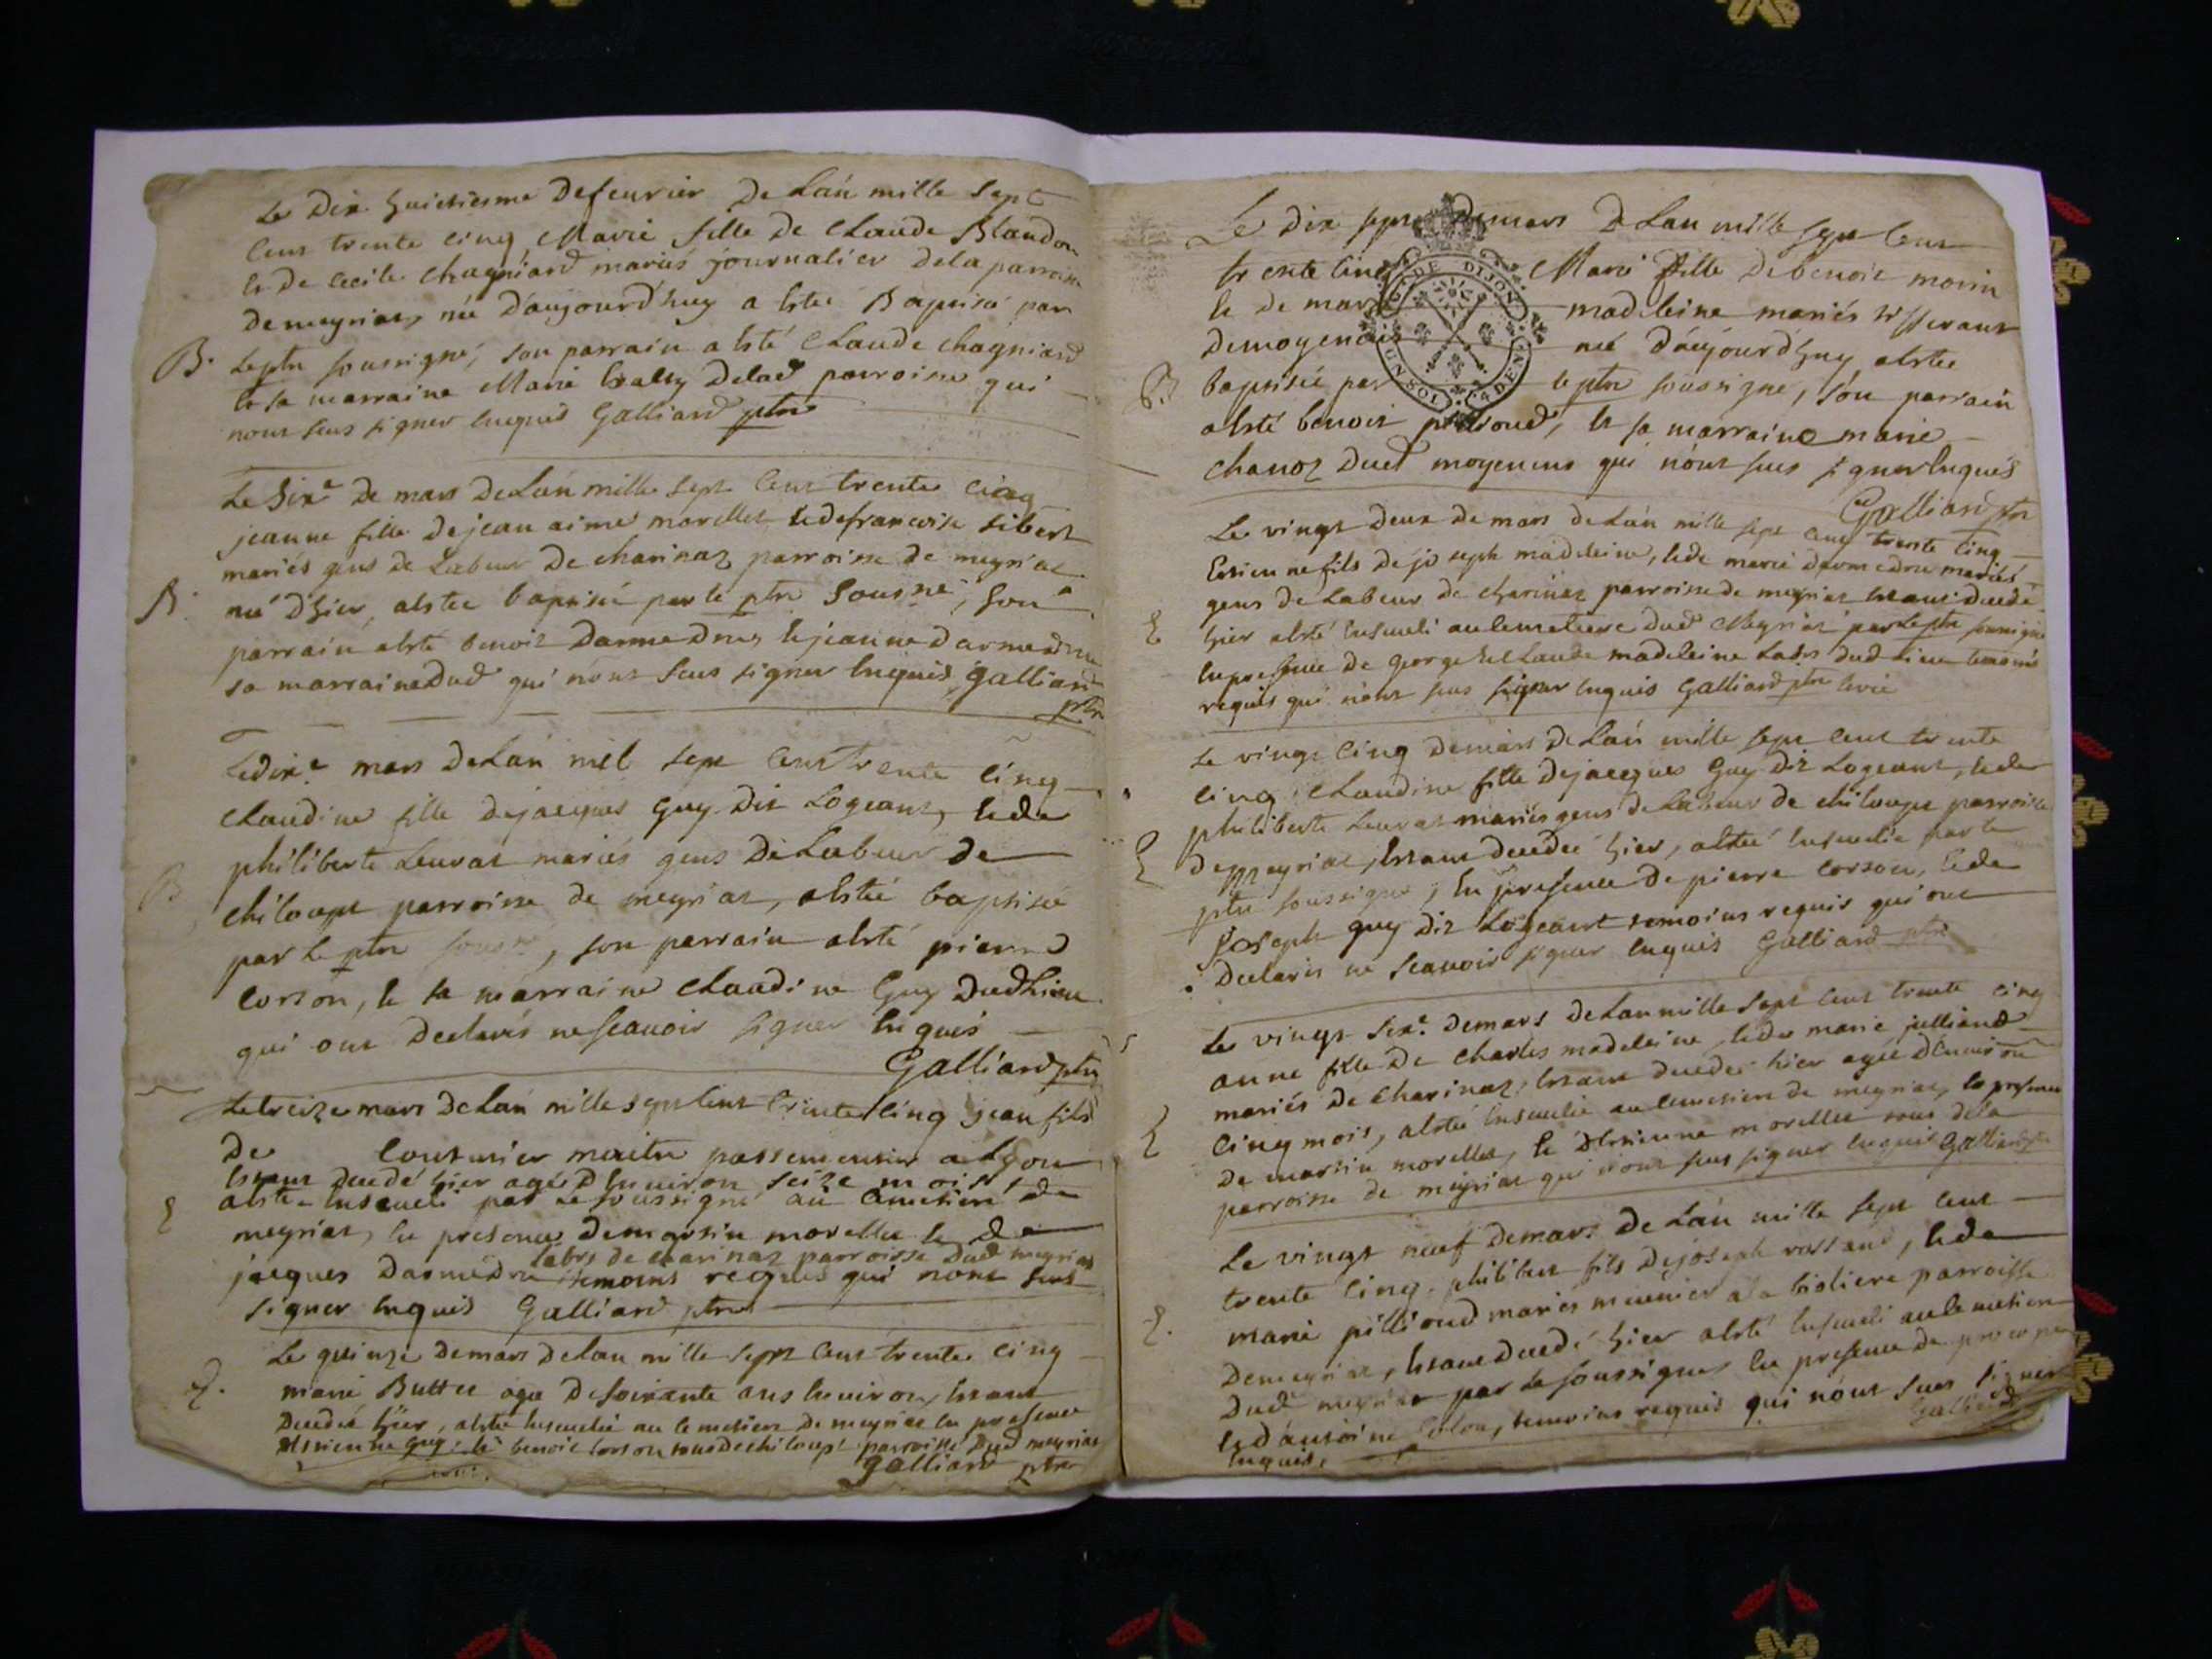 Le dix huictiesme de feuvrier de L'an mille sept
Cens trente cinq Marie fille de Claude Blandon
et de Cecile Chagniard mariés journalier dela parroisse
de meyriat, née d'aujourd'huy a Esté Baptisé par
B. Le ptre soussigné, son parrain a esté Claude Chagniard
et sa marraine Marie Delad parroisse qui
nont sceus signer Enquis Galliard ptre
Le Sixe de mars de L'an mille sept Cens trente Cinq
jeanne fille de jean aimé morellet et de francoise Sibert
mariés gens de Labeur de charinaz parroisse de meyriat
B. née d'hier, a estee baptisée par le ptre Sousné, son
parrain a esté benoit Darmedru et jeanne darmedru
sa marraine dud qui n'ont sceus signer Enquis Galliard
ptre
Le dixe mars de L'an mil sept Cens trente Cinq
Claudine fille de jacques Guy dit Logeant, et de
philiberte Leurat mariés gens de Labeur de
B chiloup parroisse de meyriat, a esteé baptisée
par Le ptre sousné, son parrain a esté pierre
Corson, et sa marraine Claudine Guy dud Lieu
qui ont declarés ne scavoir signer Enquis
Galliard ptre
Le treize mars de L'an mille sept Cens trente Cinq jean fils
de Cousturier maitre passementier a Lyon
Estant decedé hier agé d'Environ seize mois,
E a esté Enseveli par Le soussigné au Cimetiere de
meyriat, En presence de martin morellet et de
Labrs de charinaz parroisse dud meyriat
jacques Darmedru temoins requis qui nont sceus
signer Enquis Galliard ptre
Le quinze de mars de L'an mille sept Cens trente Cinq
E. marie Buttet agee de soixante ans Environ, Estant
Decedeé hier, a estée Ensevelie au Cimetiere de meyriat En presence
Estienne Guy et benoit Corson tous de chiloup parroisse dud meyriat
Galliard ptre
Le dix sept de mars de L'an mille sept Cens
trente Cinq Marie fille de benoit morin
et de marie madeleine mariés tisserant
de moyenens née d'aujourd'huy a estee
B baptisée par le ptre soussigné, son parrain
a esté benoit, et sa marraine marie
chanoz dud moyenens qui n'ont sceus signer Enquis
Galliard ptre
Le vingt deux de mars de L'an mille sept Cens trente Cinq
Estienne fils de joseph madeleine, et de marie darmedru mariés
gens de Labeur de charinaz parroisse de meyriat Estant decedé
E hier a esté Enseveli au Cimetiere dud Meyriat par Le ptre soussigné
En presence de george et Claude madeleine Labrs dud Lieu temoins
requis qui n'ont sceus signer Enquis Galliard ptre
Le vingt Cinq de mars de L'an mille sept Cens trente
Cinq Claudine fille de jacques Guy dit Logeant, et de
philiberte Leurat mariés gens de Labeur de chiloup parroisse
E de meyriat, Estant decedée hier, a esteé Ensevelie par le
ptre soussigné, En presence de pierre Corson, et de
joseph guy dit Logeant temoins requis qui ont
Declarés ne scavoir signer Enquis Galliard ptre
Le vingt Sixe de mars de L'an mille Sept Cens trente Cinq
anne fille de Charles madeleine, et de marie julliand
mariés de Charinaz, Estant decedée hier ageé d'Environ
E Cinq mois, a estée Ensevelie au Cimetiere de meyriat, En presence
de martin morellet, et d'Estienne morellet tous de la
parroisse de meyriat qui n'ont sceus signer Enquis Galliard ptre
Le vingt neuf de mars de L'an mille sept Cens
trente Cinq, philibert fils de joseph, et de
E. marie pilliond mariés meunier a la parroisse
de meyriat, Estant decedé hier a esté Enseveli au Cimetiere
dud meyriat par Le soussigné En presence de
et d'antoine, temoins requis qui n'ont sceus signer
Enquis. Galliard